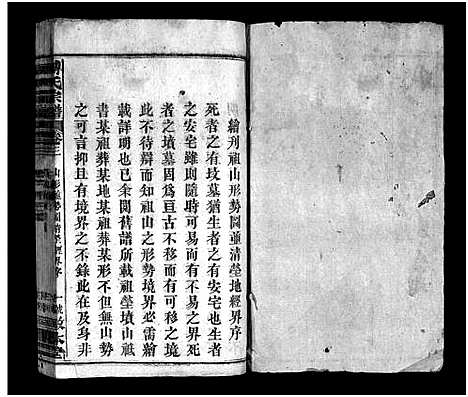 繪刋祖山形勢圖並清塋地經界序
死者之有坟墓猶生者之有安宅也生者
之安宅雖則隨時而可易而有不易之界死
者之墳墓固爲亘古不移而有可移之境
此不待辯而知祖山之形勢境界必需繪
載詳明也已余閱舊譜所載祖塋墳山祗
書某祖葬某地某祖葬某形不但無山勢
之可言抑且有境界之不錄此在及身非
氏宗譜